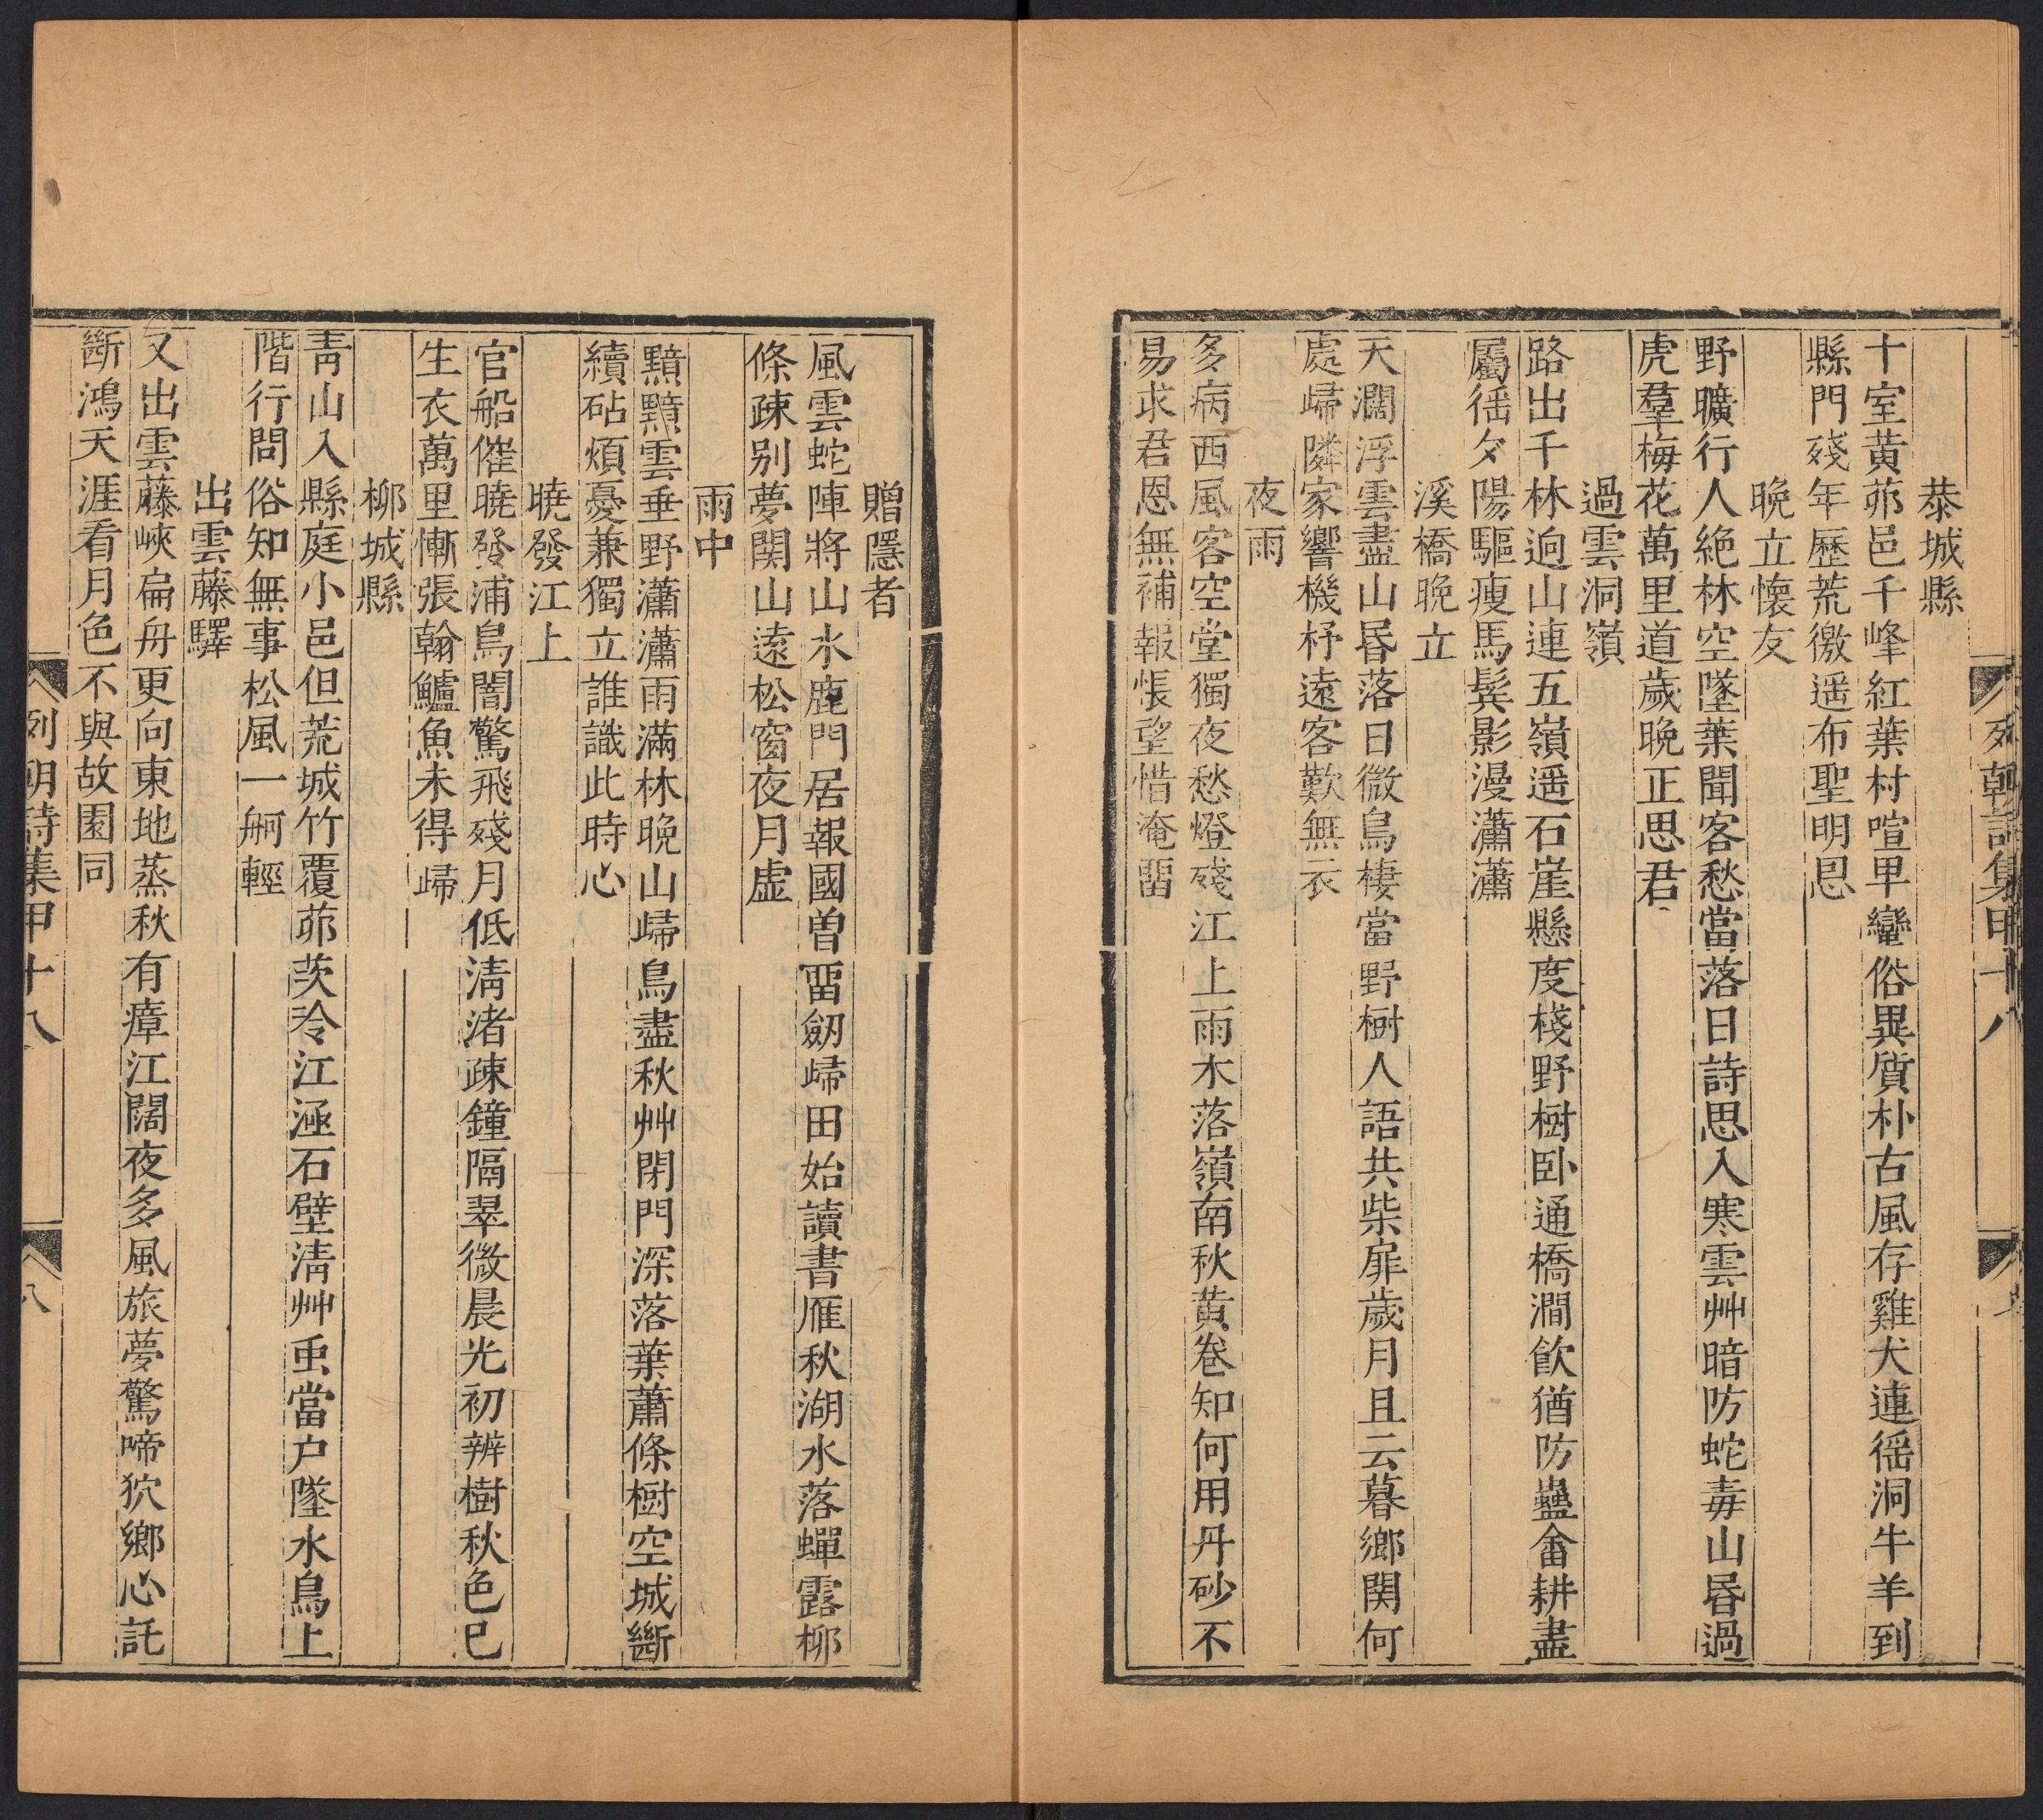 恭城縣
十室黃茆邑千峰紅葉村喧卑蠻俗異質朴古風存雞犬連徭洞牛羊到
縣門殘年歷荒徼遥布聖明恩
晚立懷友
野曠行人絶林空墜葉聞客愁當落日詩思入寒雲艸暗防蛇毒山昏過
虎羣梅花萬里道歲晚正思君
過雲洞嶺
路出千林逈山連五嶺遥石崖懸度棧野樹卧通橋澗飲猶防蠱畬耕盡
屬徭夕陽驅瘦馬鬂影漫瀟瀟
溪橋晚立
天濶浮雲盡山昏落日微鳥棲當野樹人語共柴扉歲月且云暮鄉関何
處歸隣家響機杼遠客歎無衣
夜雨
多病西風客空堂獨夜愁燈殘江上雨木落嶺南秋黃卷知何用丹砂不
易求君恩無補報悵望惜淹畱
贈隱者
風雲蛇陣將山水鹿門居報國曽畱劒歸田始讀書雁秋湖水落蟬露桺
條疎别夢関山遠松窗夜月虚
雨中
黯黯雲垂野瀟瀟雨滿林晚山歸鳥盡秋艸閉門深落葉蕭條樹空城斷
續砧煩憂兼獨立誰識此時心
曉發江上
官船催曉發浦鳥闇驚飛殘月低清渚疎鐘隔翠微晨光初辨樹秋色已
生衣萬里慚張翰鱸魚未得歸
桺城縣
青山入縣庭小邑但荒城竹覆茆茨冷江涵石壁清艸虫當户墜水鳥上
階行問俗知無事松風一舸輕
出雲藤驛
又出雲藤峽扁舟更向東地蒸秋有瘴江闊夜多風旅夢驚啼狖鄉心託
斷鴻天涯看月色不與故園同
列朝詩集甲十八
八